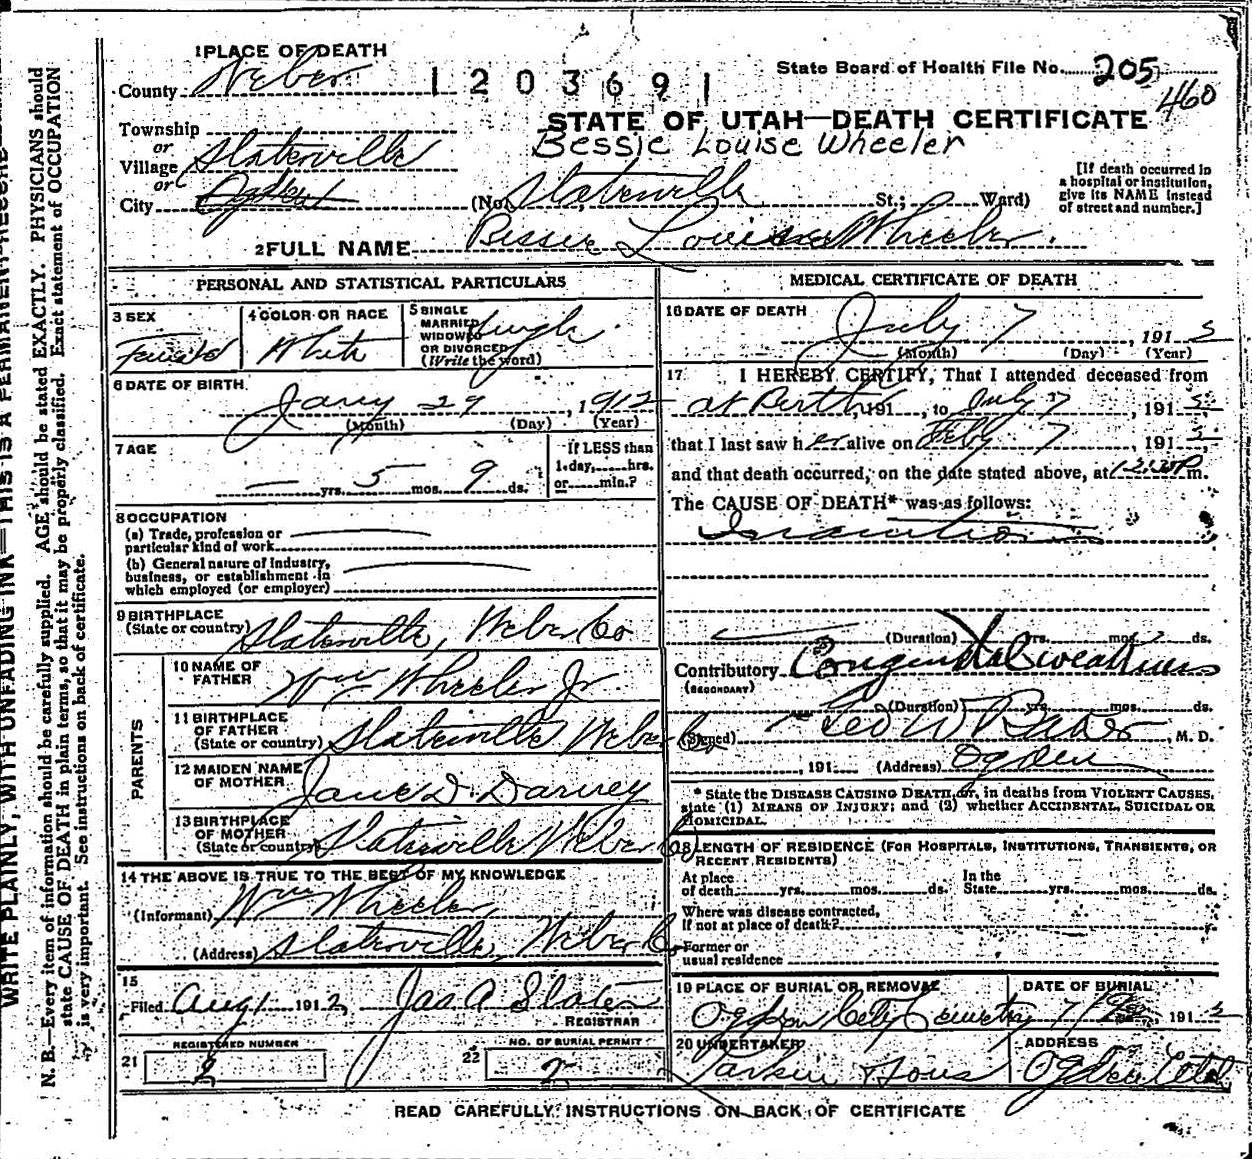 1 PLACE OF DEATH
County Weber
1203691
State Board of Health File No. 205
460
STATE OF UTAH—DEATH CERTIFICATE
Bessie Louise Wheeler
Township
or
Village Slaterville
or
City Ogden
(No. Slaterville St.; Ward)
[If death occurred in a hospital or institution, give its NAME instead of street and number.]
2 FULL NAME Bessie Louise Wheeler.
PERSONAL AND STATISTICAL PARTICULARS
3 SEX
Female
4 COLOR OR RACE
White
5 SINGLE
MARRIED
WIDOWED
OR DIVORCED
(Write the word)
Single
6 DATE OF BIRTH
Jany 29, 1912
(Month) (Day) (Year)
7 AGE
— yrs. 5 mos. 9 ds.
If LESS than
1 day, hrs.
or min.?
8 OCCUPATION
(a) Trade, profession or
particular kind of work
(b) General nature of Industry,
business, or establishment in
which employed (or employer)
9 BIRTHPLACE
(State or country) Slaterville, Weber Co
PARENTS
10 NAME OF
FATHER Wm Wheeler Jr.
11 BIRTHPLACE
OF FATHER
(State or country) Slaterville Weber Co
12 MAIDEN NAME
OF MOTHER Jane D. Darney
13 BIRTHPLACE
OF MOTHER
(State or country) Slaterville Weber Co
14 THE ABOVE IS TRUE TO THE BEST OF MY KNOWLEDGE
(Informant) Wm Wheeler
(Address) Slaterville, Weber Co
15
Filed Aug 1 1912, Jas A Slater
REGISTRAR
21 REGISTERED NUMBER
22 NO. OF BURIAL PERMIT
MEDICAL CERTIFICATE OF DEATH
16 DATE OF DEATH
July 7, 191
(Month) (Day) (Year)
17 I HEREBY CERTIFY, That I attended deceased from
at Birth, 191, to July 7, 191
that I last saw her alive on 7, 191
and that death occurred, on the date stated above, at m.
The CAUSE OF DEATH* was as follows:
Inanition
(Duration) yrs. mos. ds.
Contributory Congenital weakness
(SECONDARY)
(Duration) yrs. mos. ds.
(Signed) W, M. D.
, 191 (Address) Ogden
* State the DISEASE CAUSING DEATH, or, in deaths from VIOLENT CAUSES,
state (1) MEANS OF INJURY; and (2) whether ACCIDENTAL, SUICIDAL OR
HOMICIDAL.
18 LENGTH OF RESIDENCE (FOR HOSPITALS, INSTITUTIONS, TRANSIENTS, OR
RECENT RESIDENTS)
At place
of death yrs. mos. ds.
In the
State yrs. mos. ds.
Where was disease contracted,
If not at place of death?
Former or
usual residence
19 PLACE OF BURIAL OR REMOVAL
Ogden City Cemetry
DATE OF BURIAL
191
20 UNDERTAKER
Larkin Sons
ADDRESS
Ogden Utah
READ CAREFULLY INSTRUCTIONS ON BACK OF CERTIFICATE
WRITE PLAINLY, WITH UNFADING INK—THIS IS A PERMANENT RECORD
N. B.—Every item of information should be carefully supplied. AGE should be stated EXACTLY. PHYSICIANS should
state CAUSE OF DEATH in plain terms, so that it may be properly classified. Exact statement of OCCUPATION
is very important. See instructions on back of certificate.